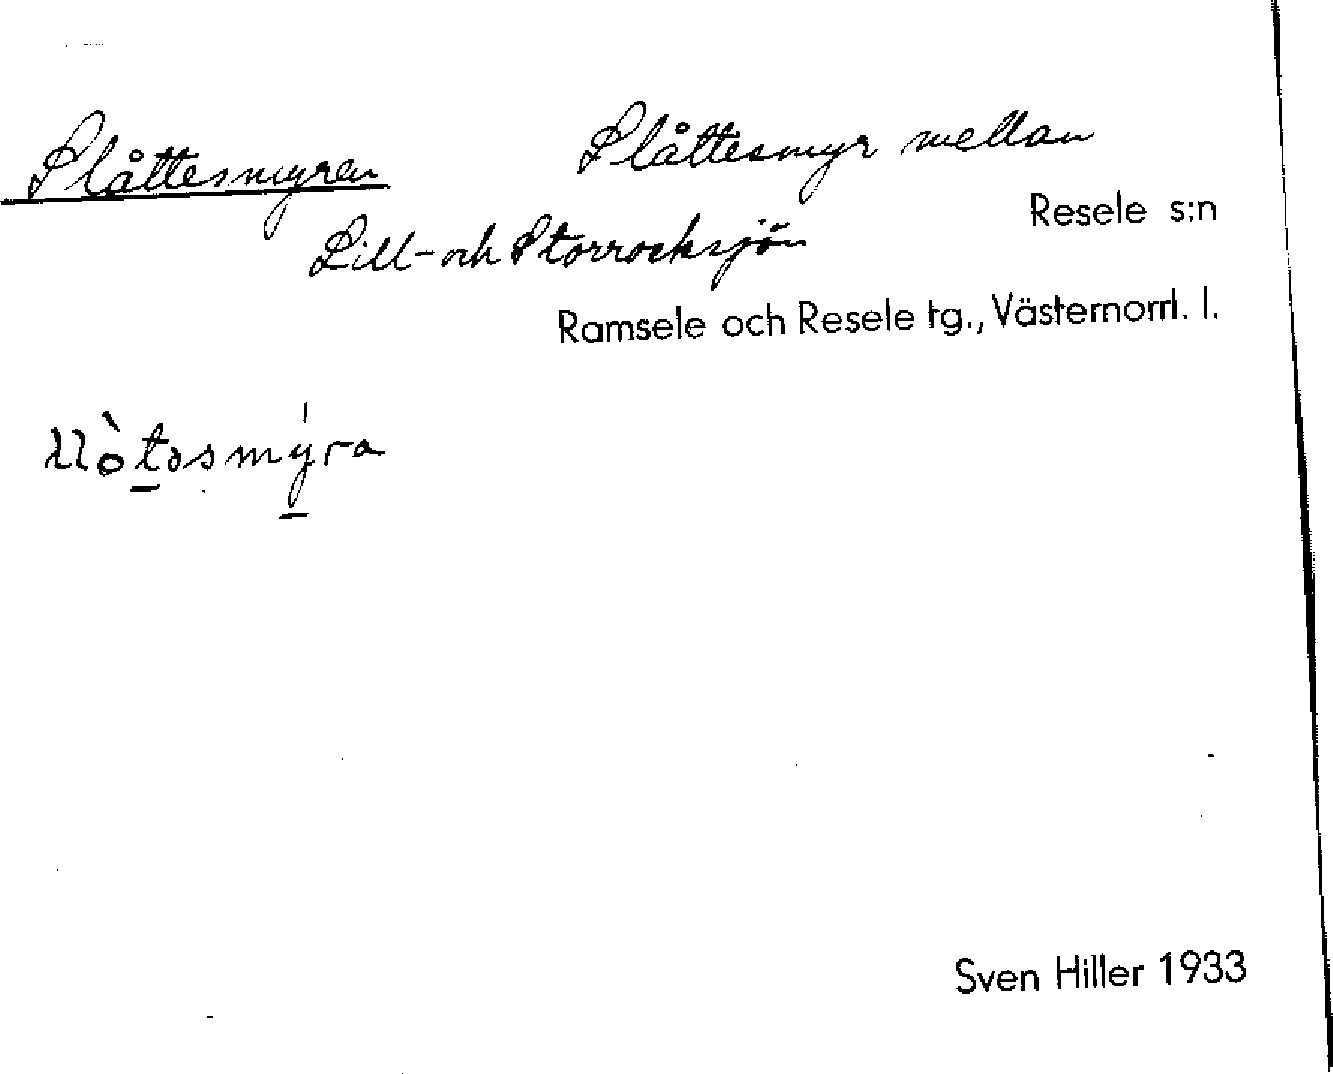 Slåttesmyren
Slåttesmyr mellan
Resele s:n
Lill- och Storrocksjön
Ramsele och Resele tg., Västernorrl. l.
Sven Hiller 1933